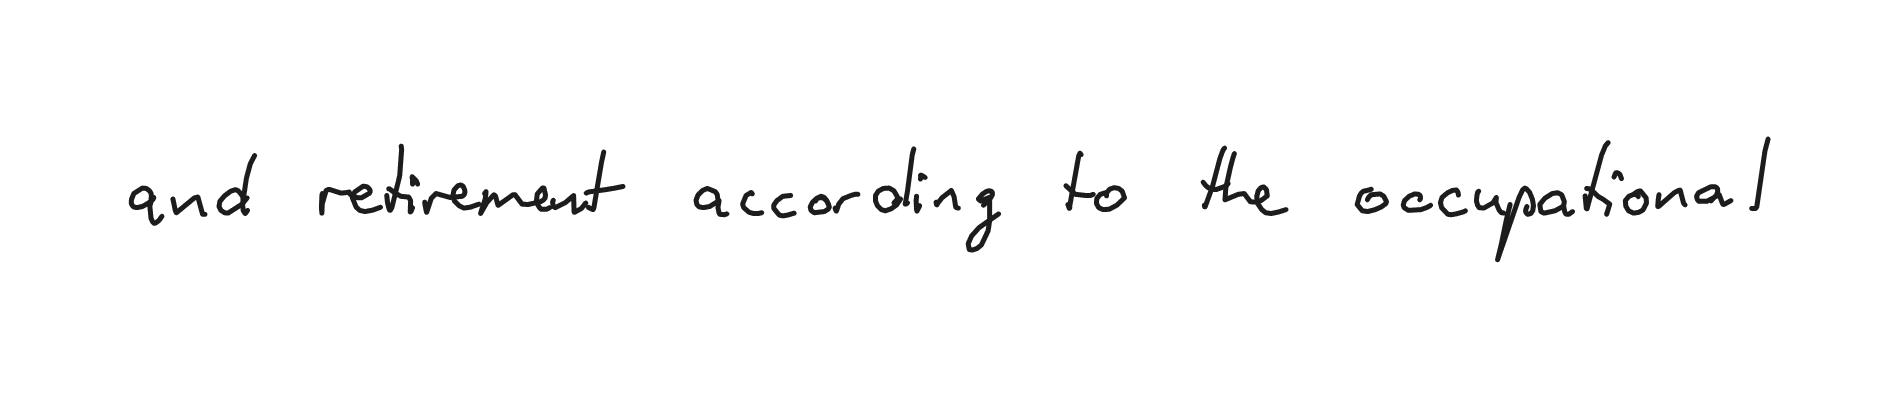 and retirement according to the occupational